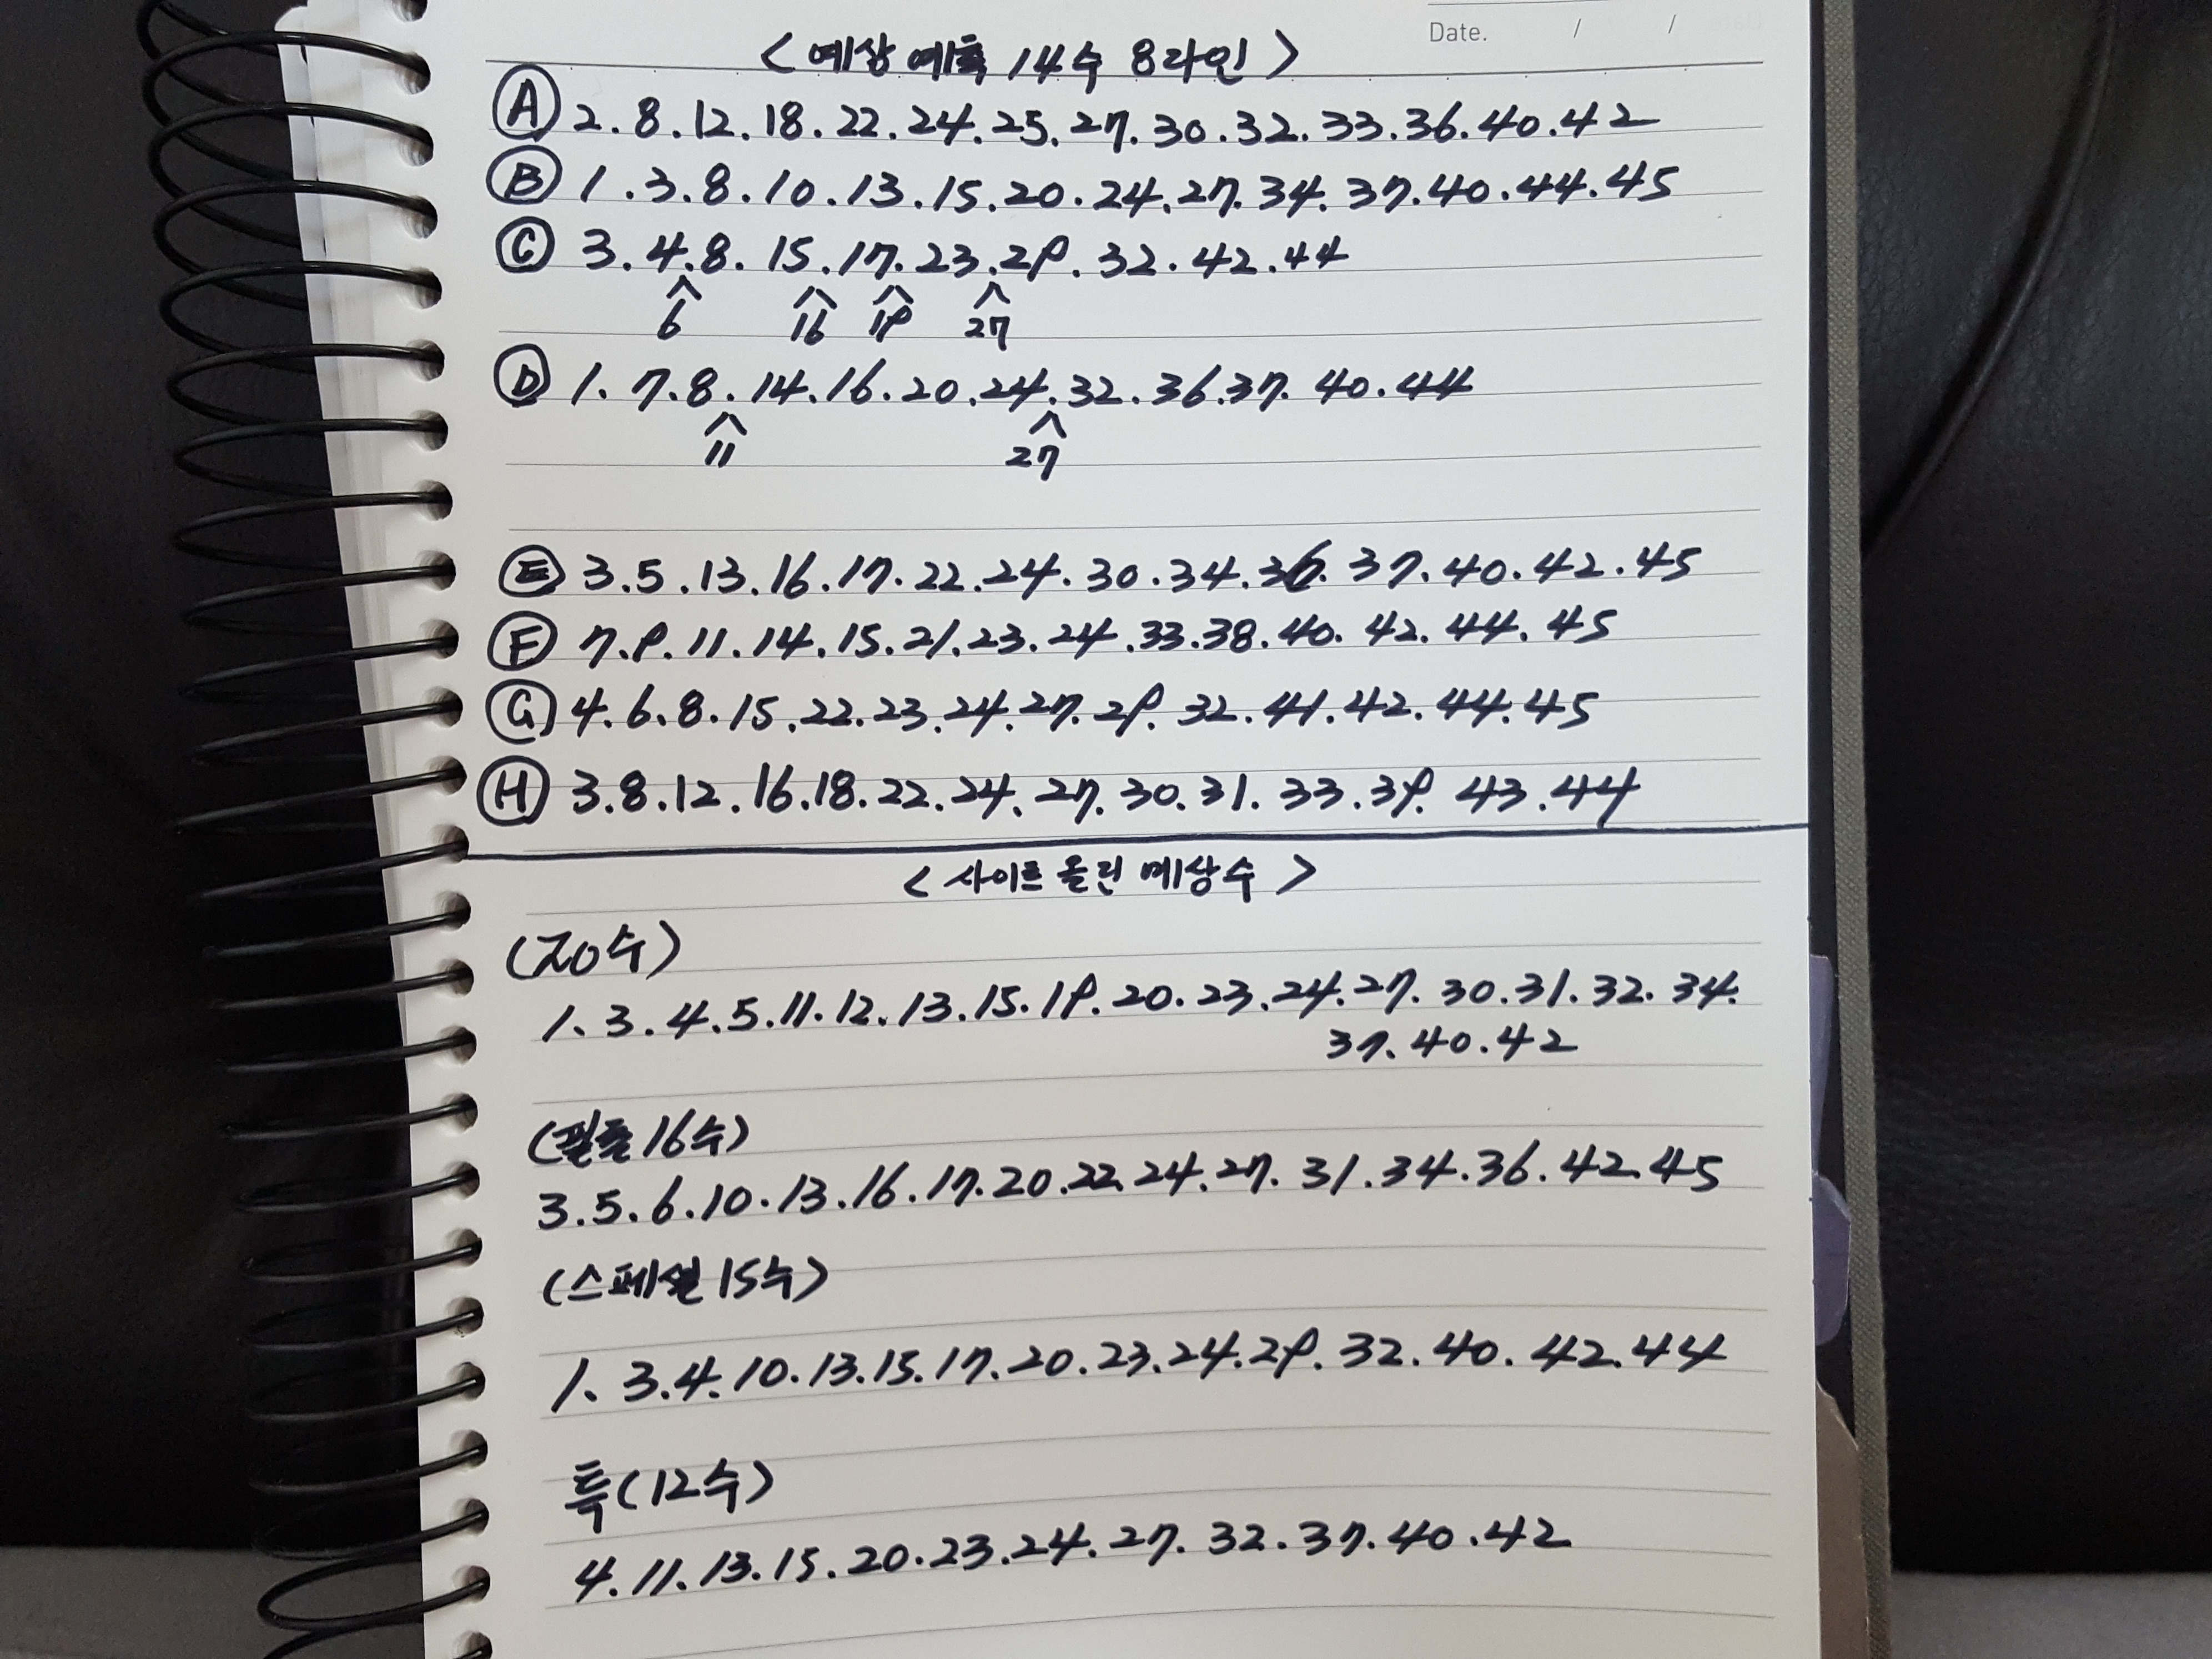 Date. / /
< 예상 예측 14수 8라인 >
Ⓐ 2.8.12.18.22.24.25.27.30.32.33.36.40.42
Ⓑ 1.3.8.10.13.15.20.24.27.34.37.40.44.45
Ⓒ 3.4.8.15.17.23.29.32.42.44
6 16 19 27
Ⓓ 1.7.8.14.16.20.24.32.36.37.40.44
11 27
Ⓔ 3.5.13.16.17.22.24.30.34.36.37.40.42.45
Ⓕ 7.9.11.14.15.21.23.24.33.38.40.42.44.45
Ⓖ 4.6.8.15.22.23.24.27.29.32.41.42.44.45
Ⓗ 3.8.12.16.18.22.24.27.30.31.33.39.43.44
< 사이트 올린 예상수 >
(20수)
1.3.4.5.11.12.13.15.19.20.23.24.27.30.31.32.34.
37.40.42
(필출16수)
3.5.6.10.13.16.17.20.22.24.27.31.34.36.42.45
(스페셜 15수)
1.3.4.10.13.15.17.20.23.24.29.32.40.42.44
특(12수)
4.11.13.15.20.23.24.27.32.37.40.42